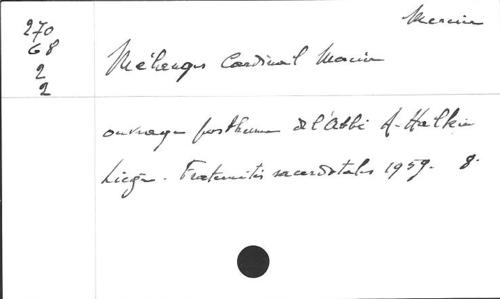 Mercier
270
68
2
2
Mélanges Cardinal Mercier
ouvrage posthume de l'abbé A. Halkin
Liège. Fraternités sacerdotales 1959. 8.